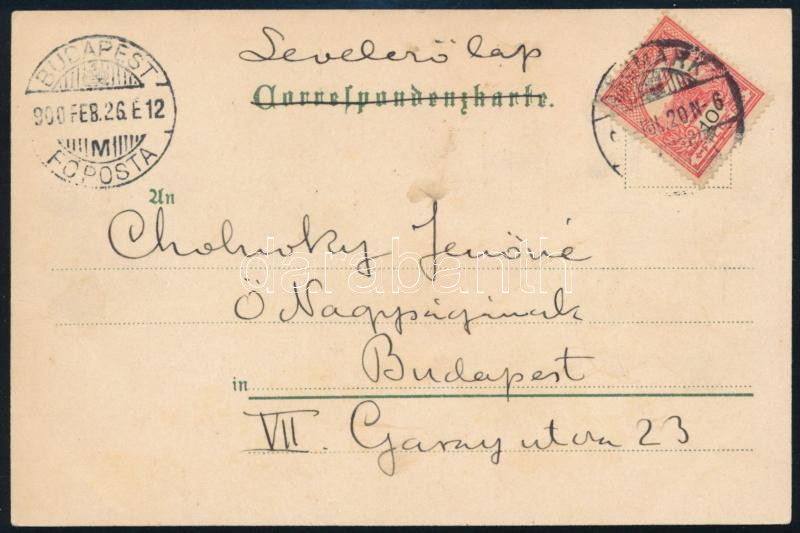 Levelező lap
Correspondenzkarte.
BUDAPEST
900 FEB. 26. É 12
M
FŐPOSTA
10
An
Cholnoky Jenőné
Ő Nagyságának
in Budapest
VII. Garay utca 23
darabanth